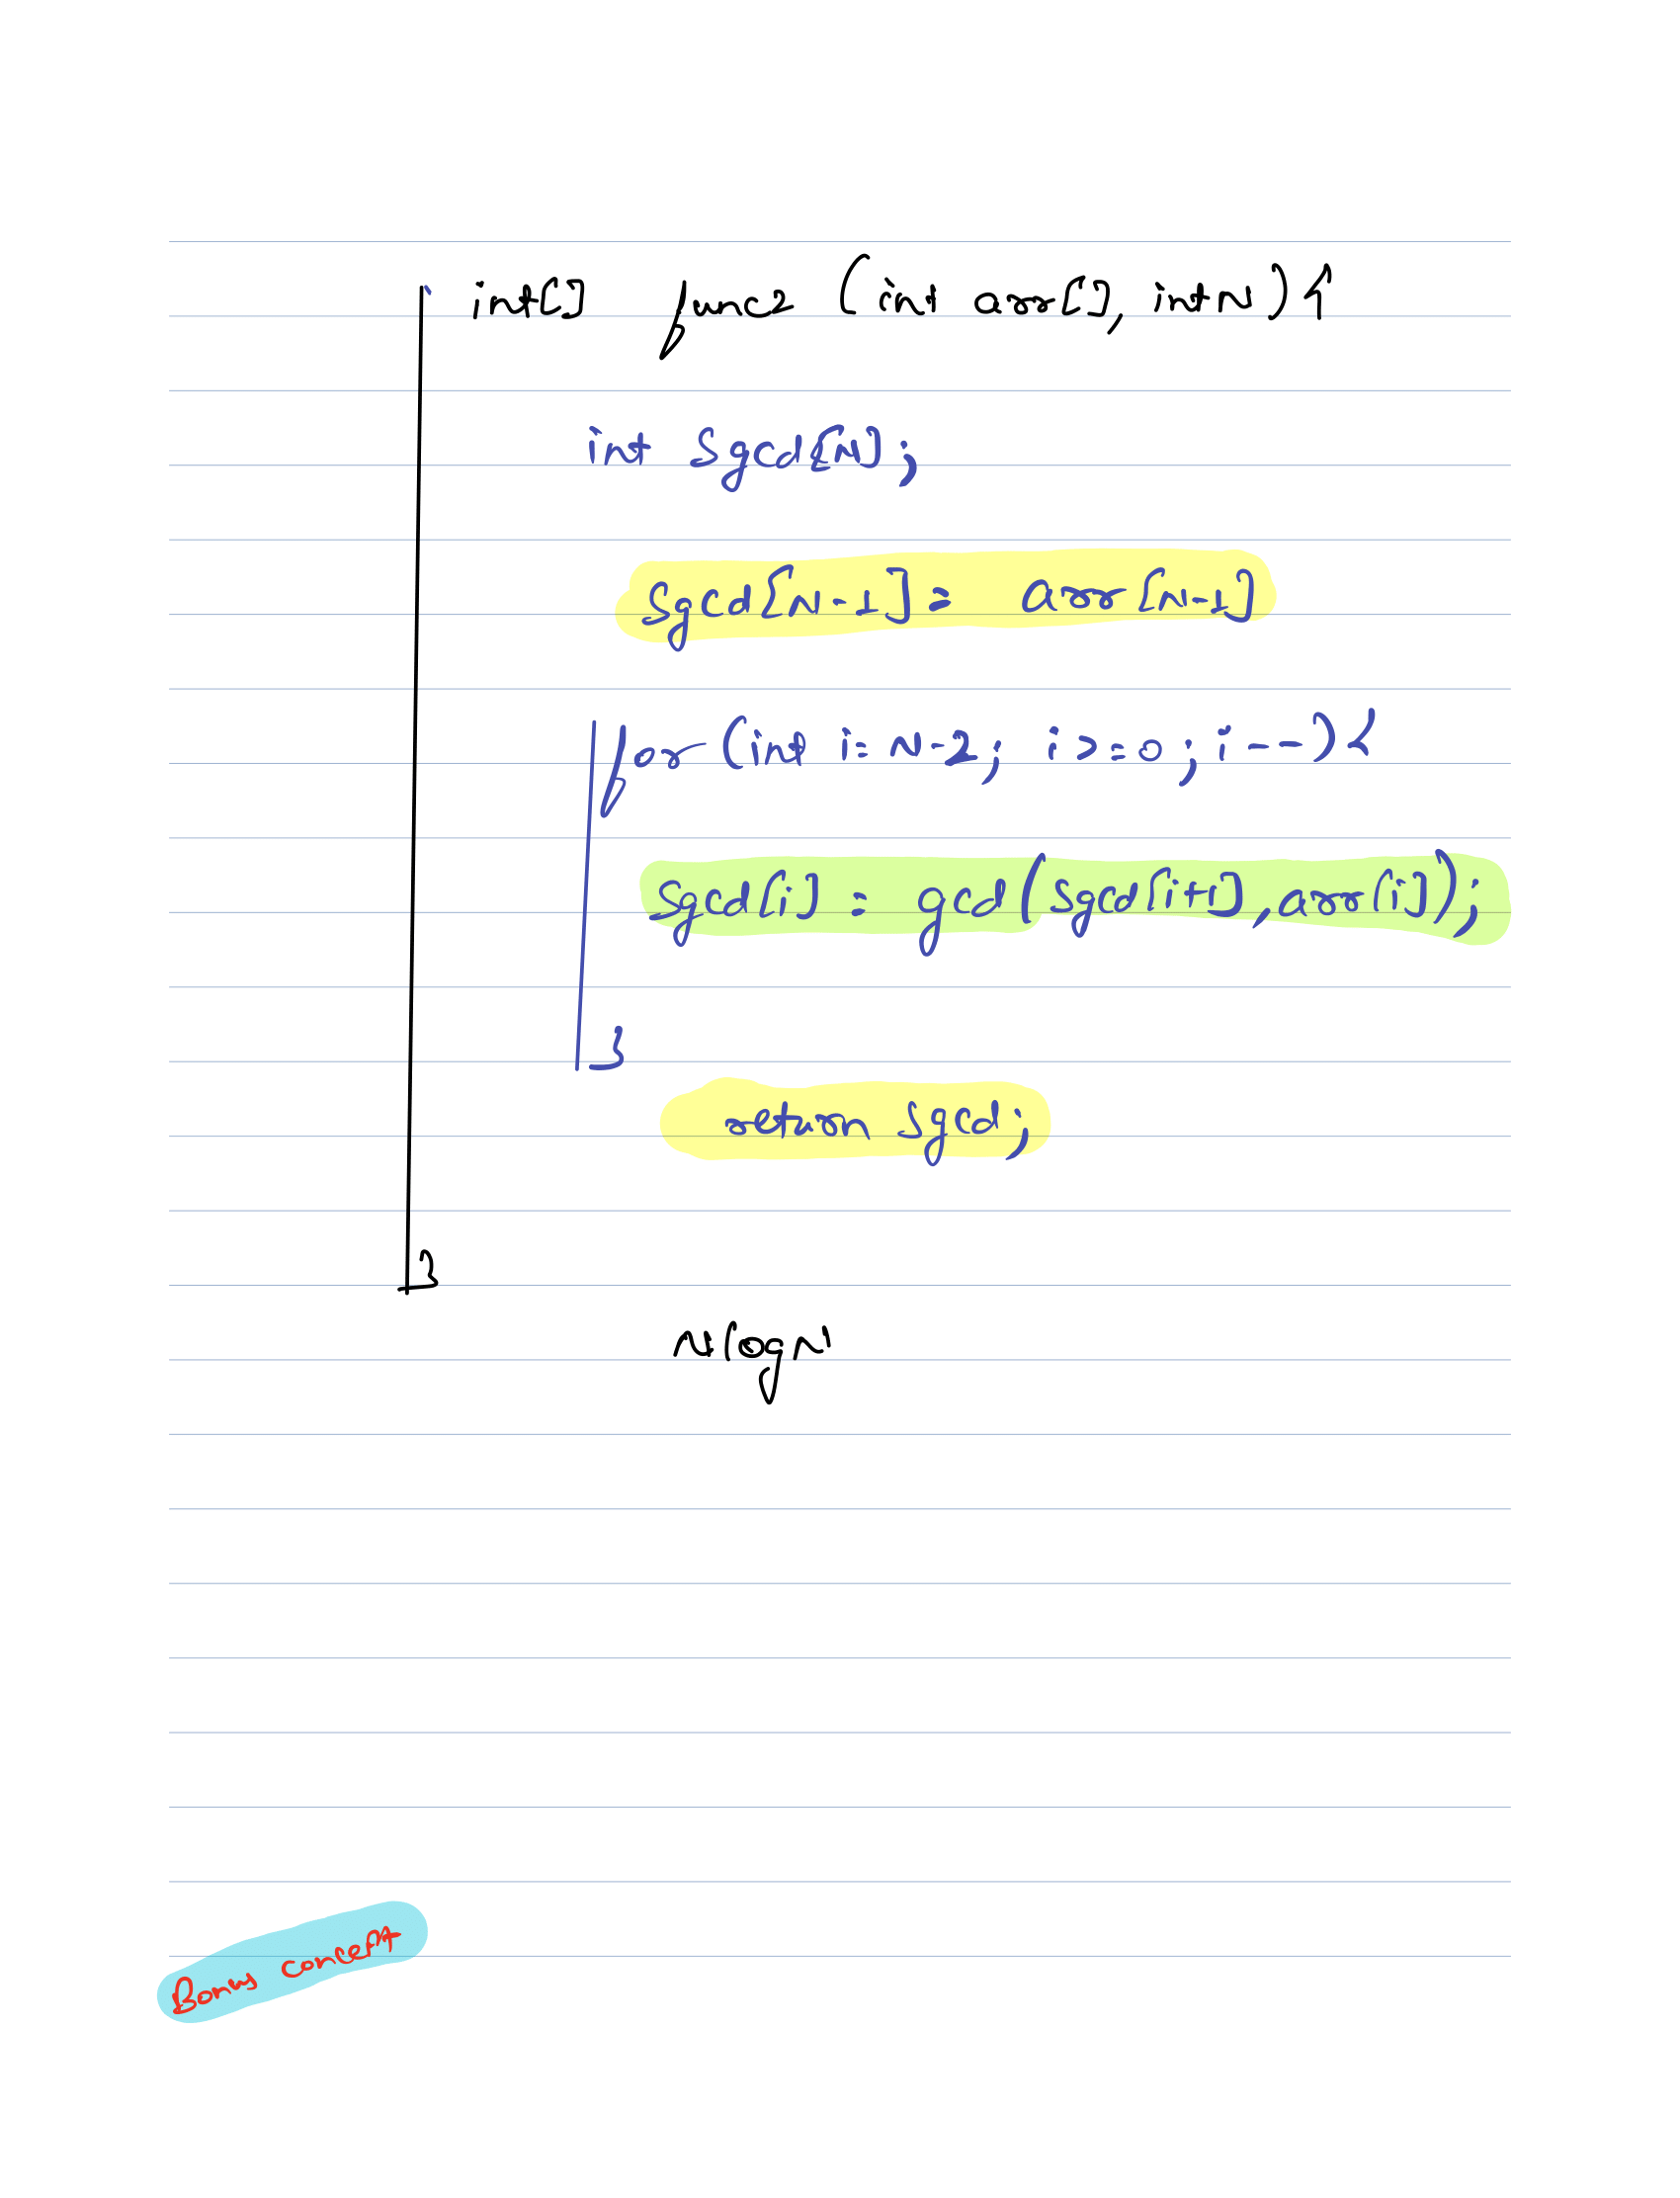 int[] func2 (int arr[], int N) {
int Sgcd[N];
Sgcd[N-1] = arr[N-1]
for (int i = N-2; i >= 0; i--) {
Sgcd[i] = gcd(Sgcd[i+1], arr[i]);
}
return Sgcd;
}
N logN
Bonus concept